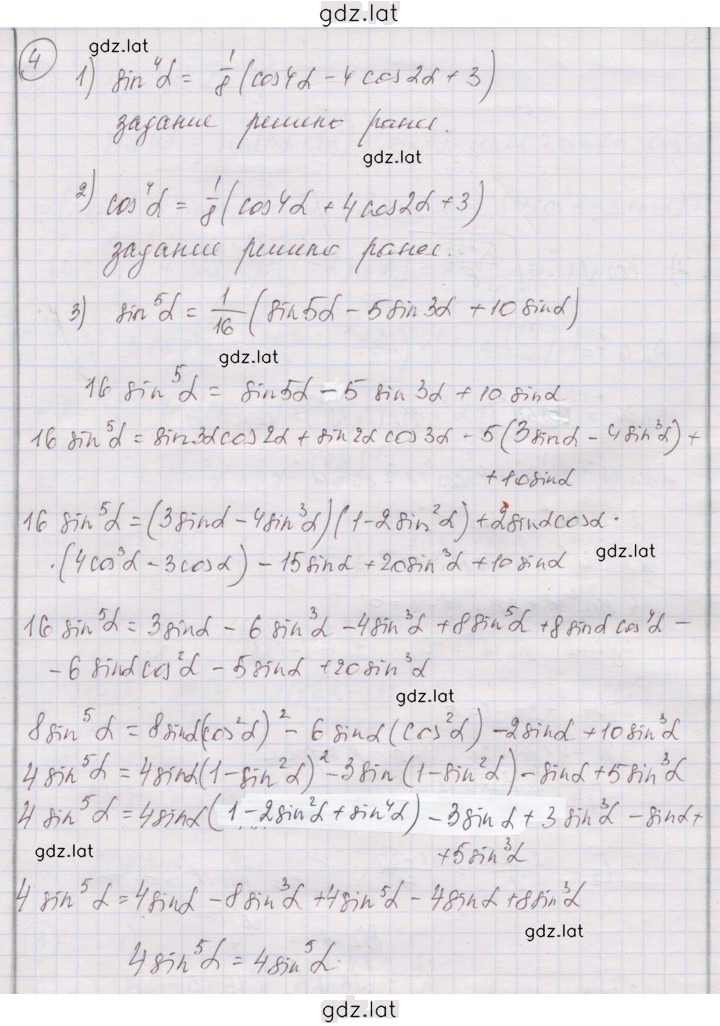 gdz.lat
4
gdz.lat
1) sin⁴α = 1/8 (cos4α - 4cos2α + 3)
задание решено ранее.
gdz.lat
2) cos⁴α = 1/8 (cos4α + 4cos2α + 3)
задание решено ранее.
3) sin⁵α = 1/16 (sin5α - 5sin3α + 10sinα)
gdz.lat
16 sin⁵α = sin5α - 5 sin3α + 10 sinα
16 sin⁵α = sin3αcos2α + sin2α cos3α - 5(3sinα - 4sin³α) +
+ 10sinα
16 sin⁵α = (3sinα - 4sin³α)(1 - 2sin²α) + 2sinαcosα ·
· (4cos³α - 3cosα) - 15sinα + 20sin³α + 10sinα
gdz.lat
16 sin⁵α = 3sinα - 6sin³α - 4sin³α + 8sin⁵α + 8sinα cos⁴α -
- 6 sinαcos²α - 5sinα + 20sin³α
gdz.lat
8sin⁵α = 8sinα(cos²α)² - 6 sinα(cos²α) - 2sinα + 10sin³α
4 sin⁵α = 4sinα(1 - sin²α)² - 3sin(1 - sin²α) - sinα + 5sin³α
4 sin⁵α = 4sinα(1 - 2sin²α + sin⁴α) - 3sinα + 3sin³α - sinα +
+ 5sin³α
gdz.lat
4 sin⁵α = 4sinα - 8sin³α + 4sin⁵α - 4sinα + 8sin³α
gdz.lat
4sin⁵α = 4sin⁵α.
gdz.lat